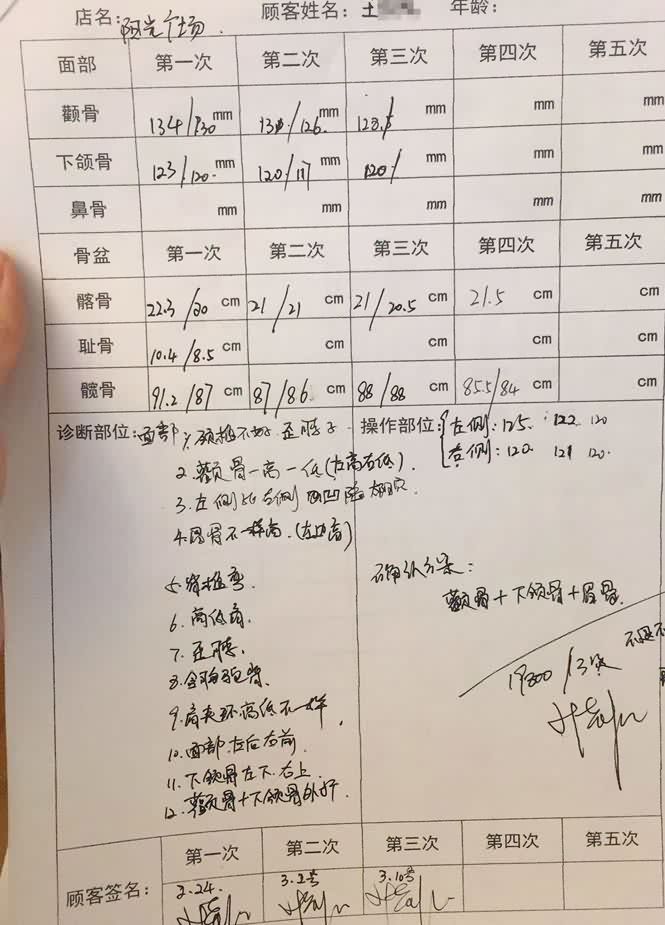 店名: 阳光广场 顾客姓名: 土 年龄:
面部 第一次 第二次 第三次 第四次 第五次
颧骨 134/130 mm 130/126 mm 128.5/ mm mm mm
下颌骨 123/120 mm 120/117 mm 120/ mm mm mm
鼻骨 mm mm mm mm mm
骨盆 第一次 第二次 第三次 第四次 第五次
髂骨 22.3/20 cm 21/21 cm 21/20.5 cm 21.5 cm cm
耻骨 10.4/8.5 cm cm cm cm cm
髋骨 91.2/87 cm 87/86 cm 88/88 cm 85.5/84 cm cm
诊断部位: 面部 1、颈椎不好 歪脖子
2. 颧骨一高一低(左高右低).
3. 左侧比右侧 凹陷
4. 眉骨不一样高.
5. 脊椎弯.
6. 高低肩.
7. 歪脖.
8. 含胸驼背.
9. 高低不一样.
10. 面部左后右前.
11. 下颌骨左下.右上.
12. 颧骨+下颌骨外扩.
操作部位: 左侧: 125. 122 120
右侧: 120. 121 120.
确认方案:
颧骨+下颌骨+眉骨.
19800/13次
第一次 第二次 第三次 第四次 第五次
顾客签名: 2.24. 3.2号 3.10号